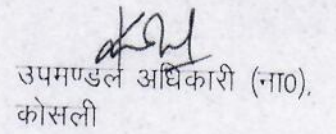 उपमण्डल अधिकारी (ना0),
कोसली